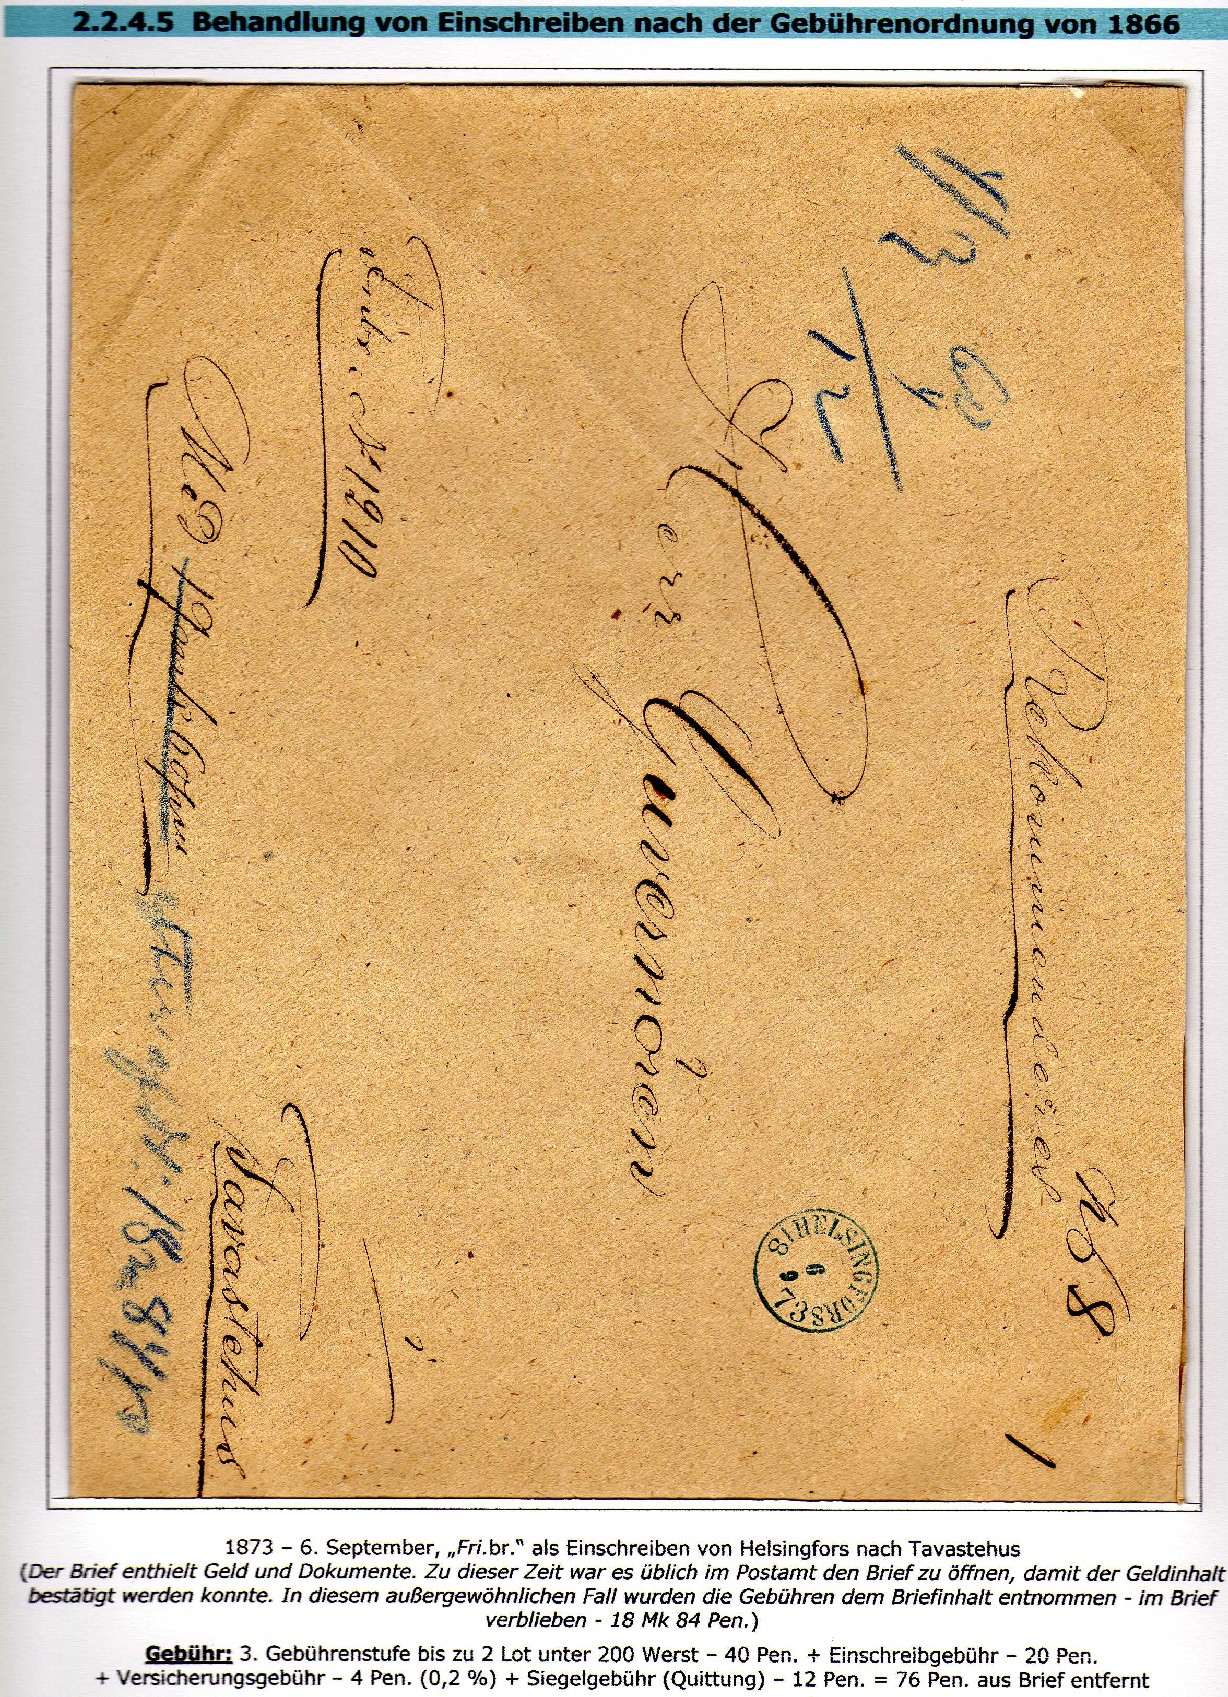 2.2.4.5 Behandlung von Einschreiben nach der Gebührenordnung von 1866
Rekommenderas
N 8
Herr Guvernören
i
Tavastehus
Fribr. N 1910
Med
HELSINGFORS
6
9
73
1873 – 6. September, „Fri.br." als Einschreiben von Helsingfors nach Tavastehus
(Der Brief enthielt Geld und Dokumente. Zu dieser Zeit war es üblich im Postamt den Brief zu öffnen, damit der Geldinhalt
bestätigt werden konnte. In diesem außergewöhnlichen Fall wurden die Gebühren dem Briefinhalt entnommen - im Brief
verblieben - 18 Mk 84 Pen.)
Gebühr: 3. Gebührenstufe bis zu 2 Lot unter 200 Werst – 40 Pen. + Einschreibgebühr – 20 Pen.
+ Versicherungsgebühr – 4 Pen. (0,2 %) + Siegelgebühr (Quittung) – 12 Pen. = 76 Pen. aus Brief entfernt